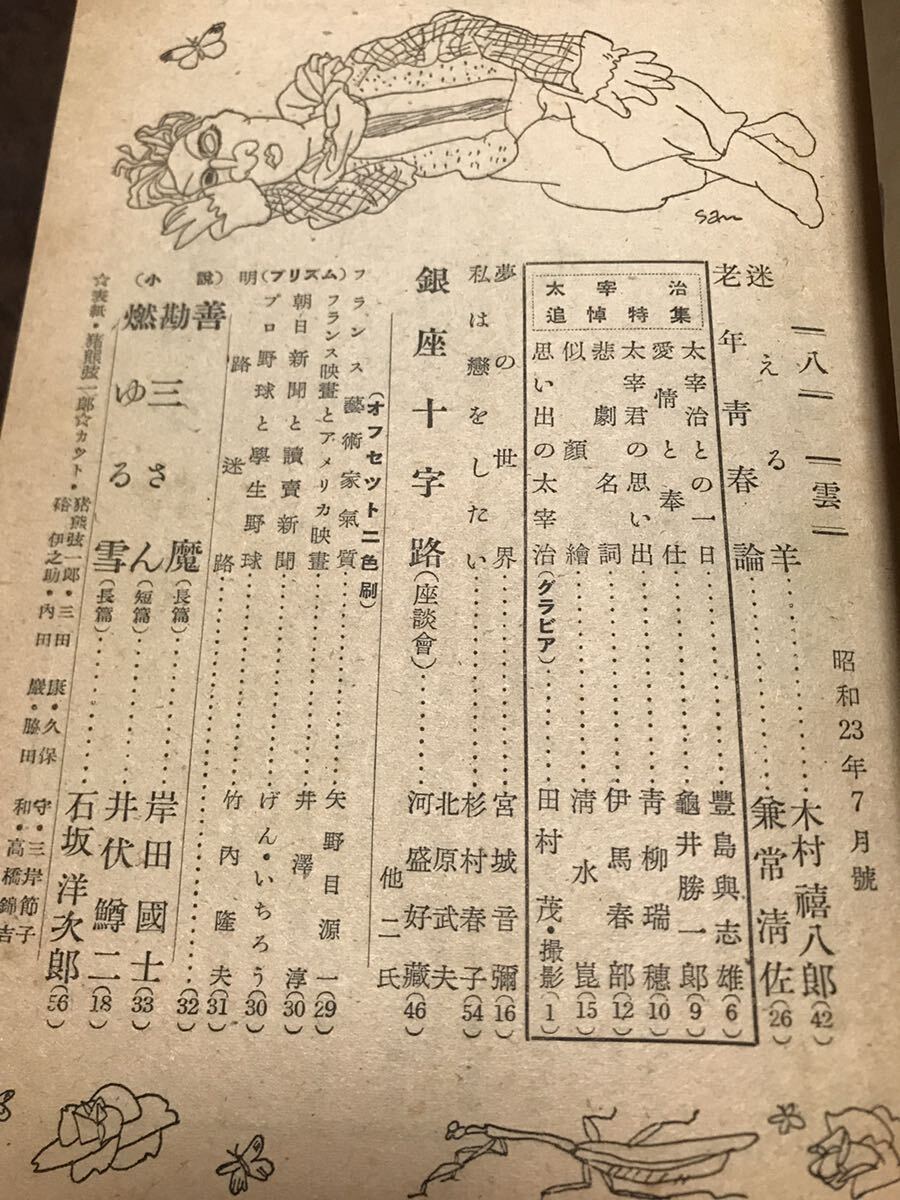 昭和23年7月號
八雲
迷える羊……木村禧八郎(42)
老年青春論……兼常淸佐(26)
太宰治
追悼特集
太宰治との一日……豐島與志雄(6)
愛情と奉仕……龜井勝一郎(9)
太宰君の思い出……靑柳瑞穗(10)
悲劇名詞……伊馬春部(12)
似顏繪……淸水崑(15)
思い出の太宰治(グラビア)……田村茂・撮影(1)
夢の世界……宮城音彌(16)
私は戀をしたい……杉村春子(54)
銀座十字路(座談會)……北原武夫 河盛好藏 他二氏(46)
(オフセット二色刷)
フランス藝術家氣質……矢野目源一(29)
(プリズム)
フランス映畫とアメリカ映畫……井澤淳(30)
朝日新聞と讀賣新聞……げん・いちろう(30)
プロ野球と學生野球……竹內隆夫(31)
明路迷路……(32)
(小說)
善魔(長篇)……岸田國士(33)
勘三さん(短篇)……井伏鱒二(18)
燃ゆる雪(長篇)……石坂洋次郎(56)
☆表紙・猪熊弦一郎☆カット・猪熊弦一郎・三田康・久保守・三岸節子
硲伊之助・內田巖・脇田和・高橋錦吉
sam